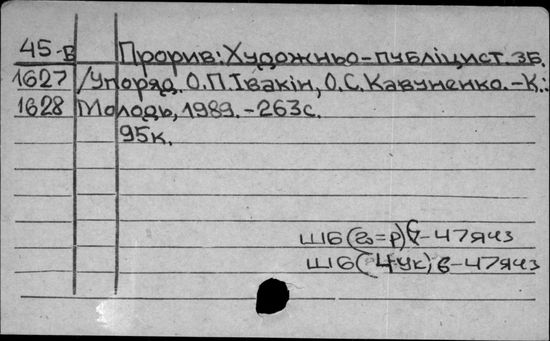 45-Б Прорив: Художньо-публіцист. зб.
1627 /Упоряд. О.П.Івакін, О.С.Кавуненко.-К.:
1628 Молодь, 1989.-263с.
95к.
ШБ
ШБ